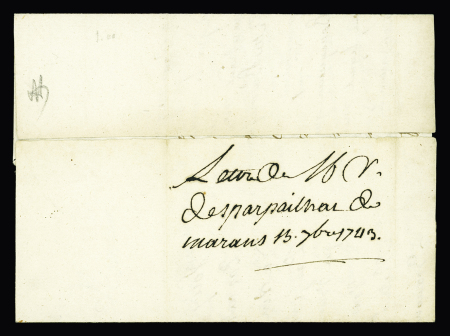 Lettre de Mr V.
desparpailhac de
marans 13. 7bre 1743.